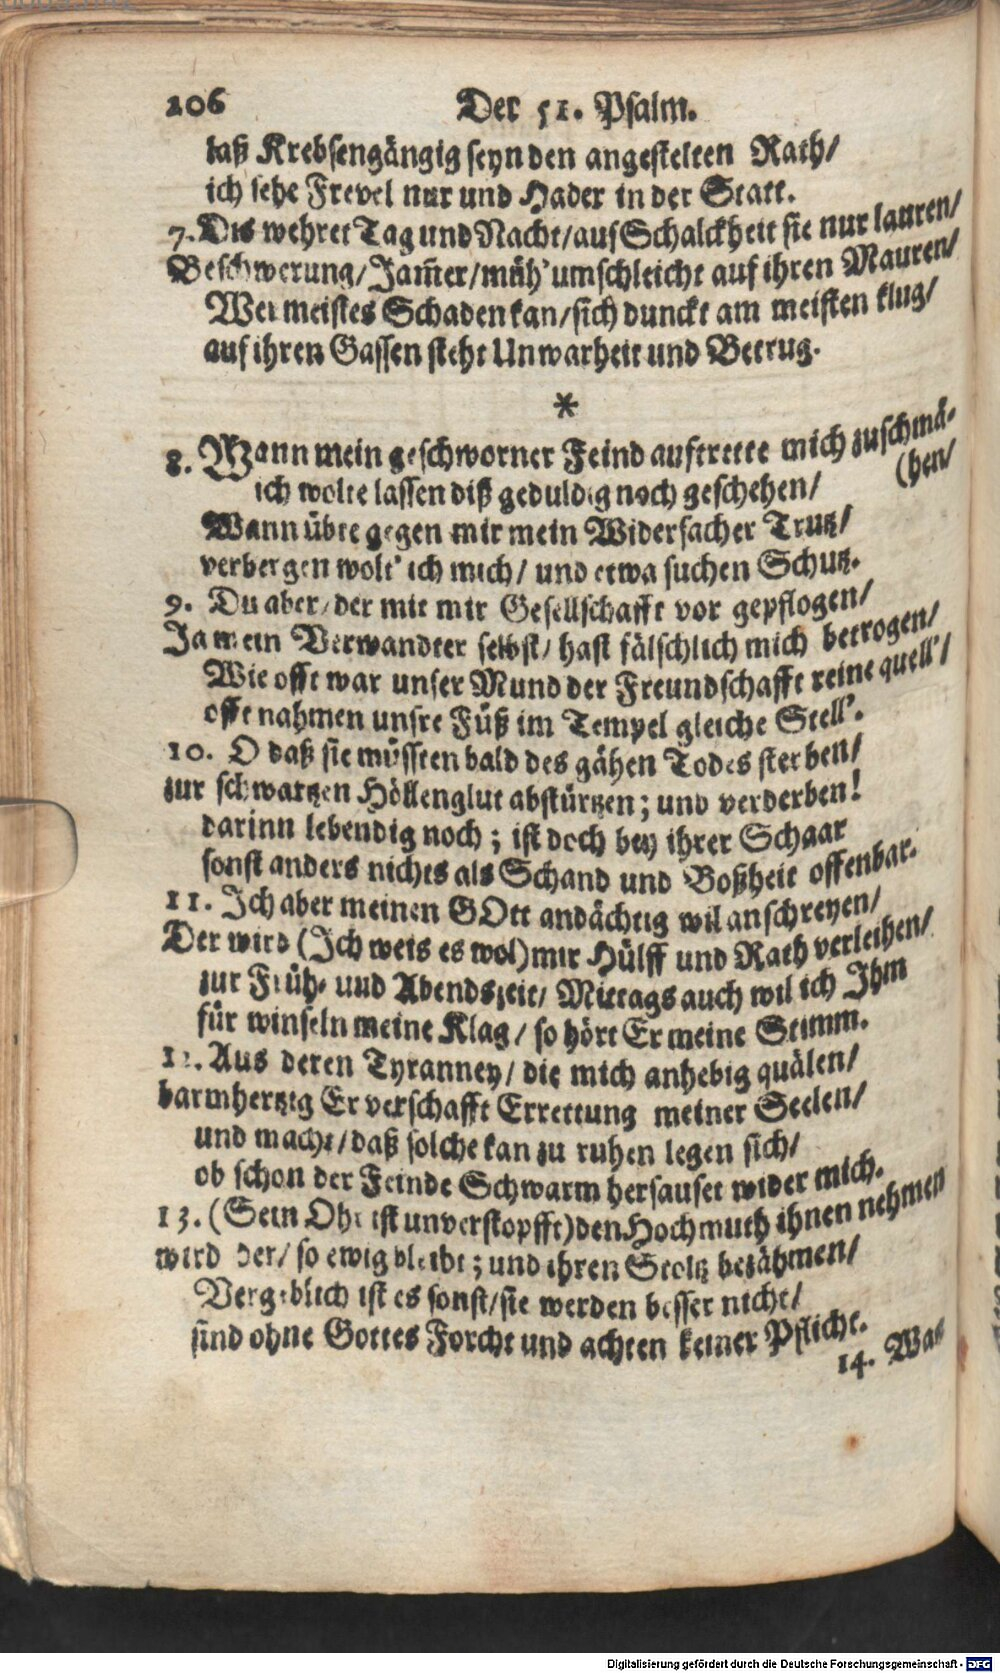 206 Der 51. Psalm.
laß Krebsengängig seyn den angestelten Rath/
ich sehe Frevel nur und Hader in der Statt.
7. Dis wehret Tag und Nacht/ auf Schalckheit sie nur lauren/
Beschwerung/ Jam̃er/ müh' umschleicht auf ihren Mauren/
Wer meistes Schaden kan/ sich dunckt am meisten klug/
auf ihren Gassen steht Unwarheit und Betrug.
*
8. Wann mein geschworner Feind auftrette mich zuschmä-
(hen/
ich wolte lassen diß geduldig noch geschehen/
Wann übte gegen mir mein Widersacher Trutz/
verbergen wolt' ich mich/ und etwa suchen Schutz.
9. Du aber/ der mit mir Gesellschafft vor gepflogen/
Ja mein Verwandter selbst/ hast fälschlich mich betrogen/
Wie offt war unser Mund der Freundschafft reine quell'/
offt nahmen unsre Füß im Tempel gleiche Stell'.
10. O daß sie müssten bald des gähen Todes sterben/
zur schwartzen Höllenglut abstürtzen; und verderben!
darinn lebendig noch; ist doch bey ihrer Schaar
sonst anders nichts als Schand und Boßheit offenbar.
11. Ich aber meinen GOtt andächtig wil anschreyen/
Der wird (Ich weis es wol) mir Hülff und Rath verleihen/
zur Früh- und Abendszeit/ Mittags auch wil ich Ihm
für winseln meine Klag/ so hört Er meine Stimm.
12. Aus deren Tyranney/ die mich anhebig quälen/
barmhertzig Er verschafft Errettung meiner Seelen/
und macht/ daß solche kan zu ruhen legen sich/
ob schon der Feinde Schwarm hersauset wider mich.
13. (Sein Ohr ist unverstopfft) den Hochmuth ihnen nehmen
wird der/ so ewig bleibt; und ihren Stoltz bezähmen/
Vergeblich ist es sonst/ sie werden besser nicht/
sind ohne Gottes Forcht und achten keiner Pflicht.
14. Was
Digitalisierung gefördert durch die Deutsche Forschungsgemeinschaft - DFG